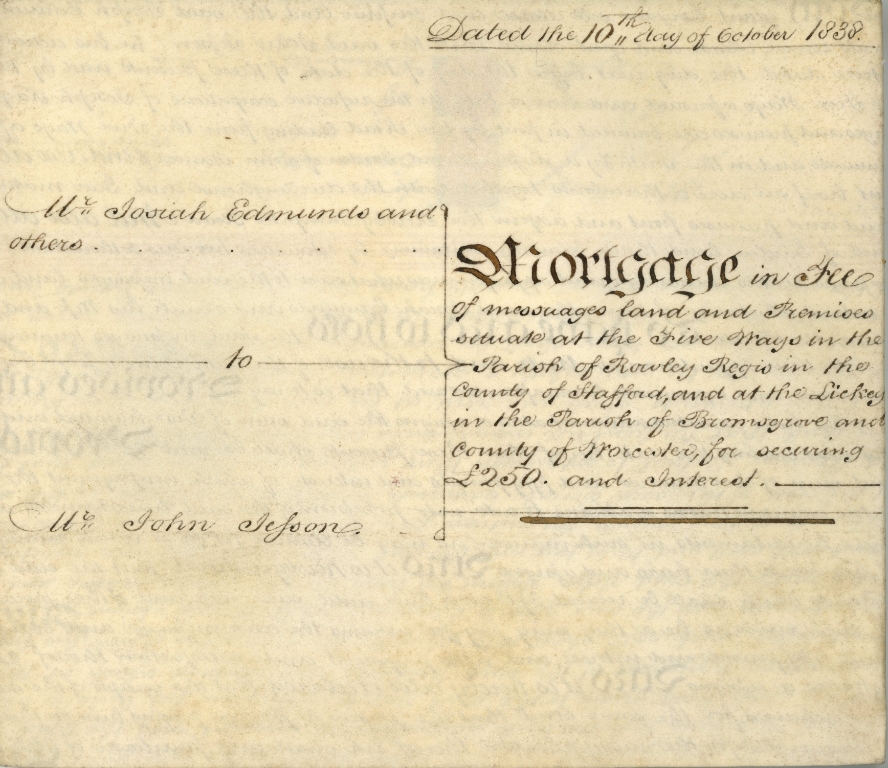 Dated the 10th day of October 1838.
Mr. Josiah Edmunds and
others.
to
Mr. John Jesson.
Mortgage in Fee
of messuages land and Premises
situate at the Five Ways in the
Parish of Rowley Regis in the
County of Stafford, and at the Lickey
in the Parish of Bromsgrove and
County of Worcester, for securing
£250. and Interest.